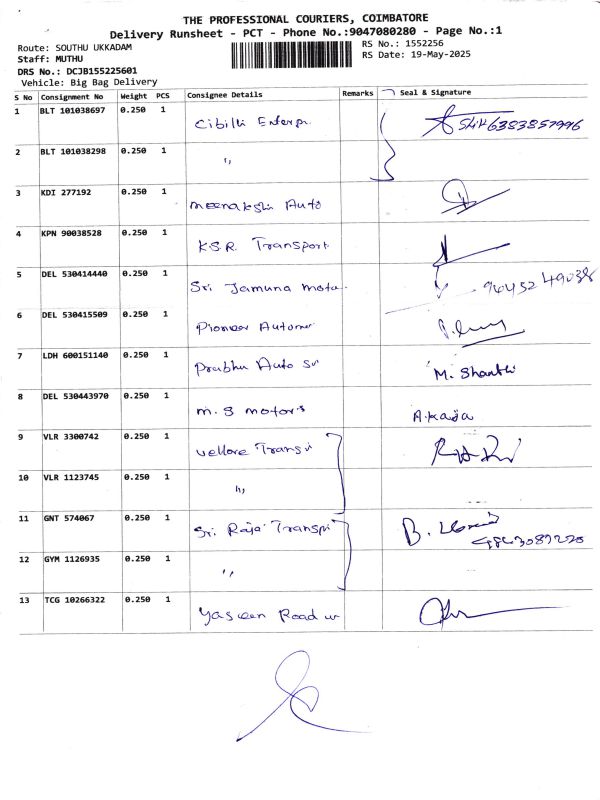 THE PROFESSIONAL COURIERS, COIMBATORE
Delivery Runsheet - PCT - Phone No.:9047080280 - Page No.:1
Route: SOUTHU UKKADAM
RS No.: 1552256
Staff: MUTHU
RS Date: 19-May-2025
DRS No.: DCJB155225601
Vehicle: Big Bag Delivery
S No Consignment No Weight PCS Consignee Details Remarks Seal & Signature
1 BLT 101038697 0.250 1 Cibilli Enterpr 6383857996
2 BLT 101038298 0.250 1 "
3 KDI 277192 0.250 1 meenakshi Auto
4 KPN 90038528 0.250 1 K.S.R. Transport
5 DEL 530414440 0.250 1 Sri Jamuna moto.
6 DEL 530415509 0.250 1 Pioneer Automo
7 LDH 600151140 0.250 1 Prabhu Auto Sr M. Shanthi
8 DEL 530443970 0.250 1 m.s motors A.kaja
9 VLR 3300742 0.250 1 vellore Transp
10 VLR 1123745 0.250 1 "
11 GNT 574067 0.250 1 Sri Raja Transpr B.
12 GYM 1126935 0.250 1 "
13 TCG 10266322 0.250 1 yasween Road w